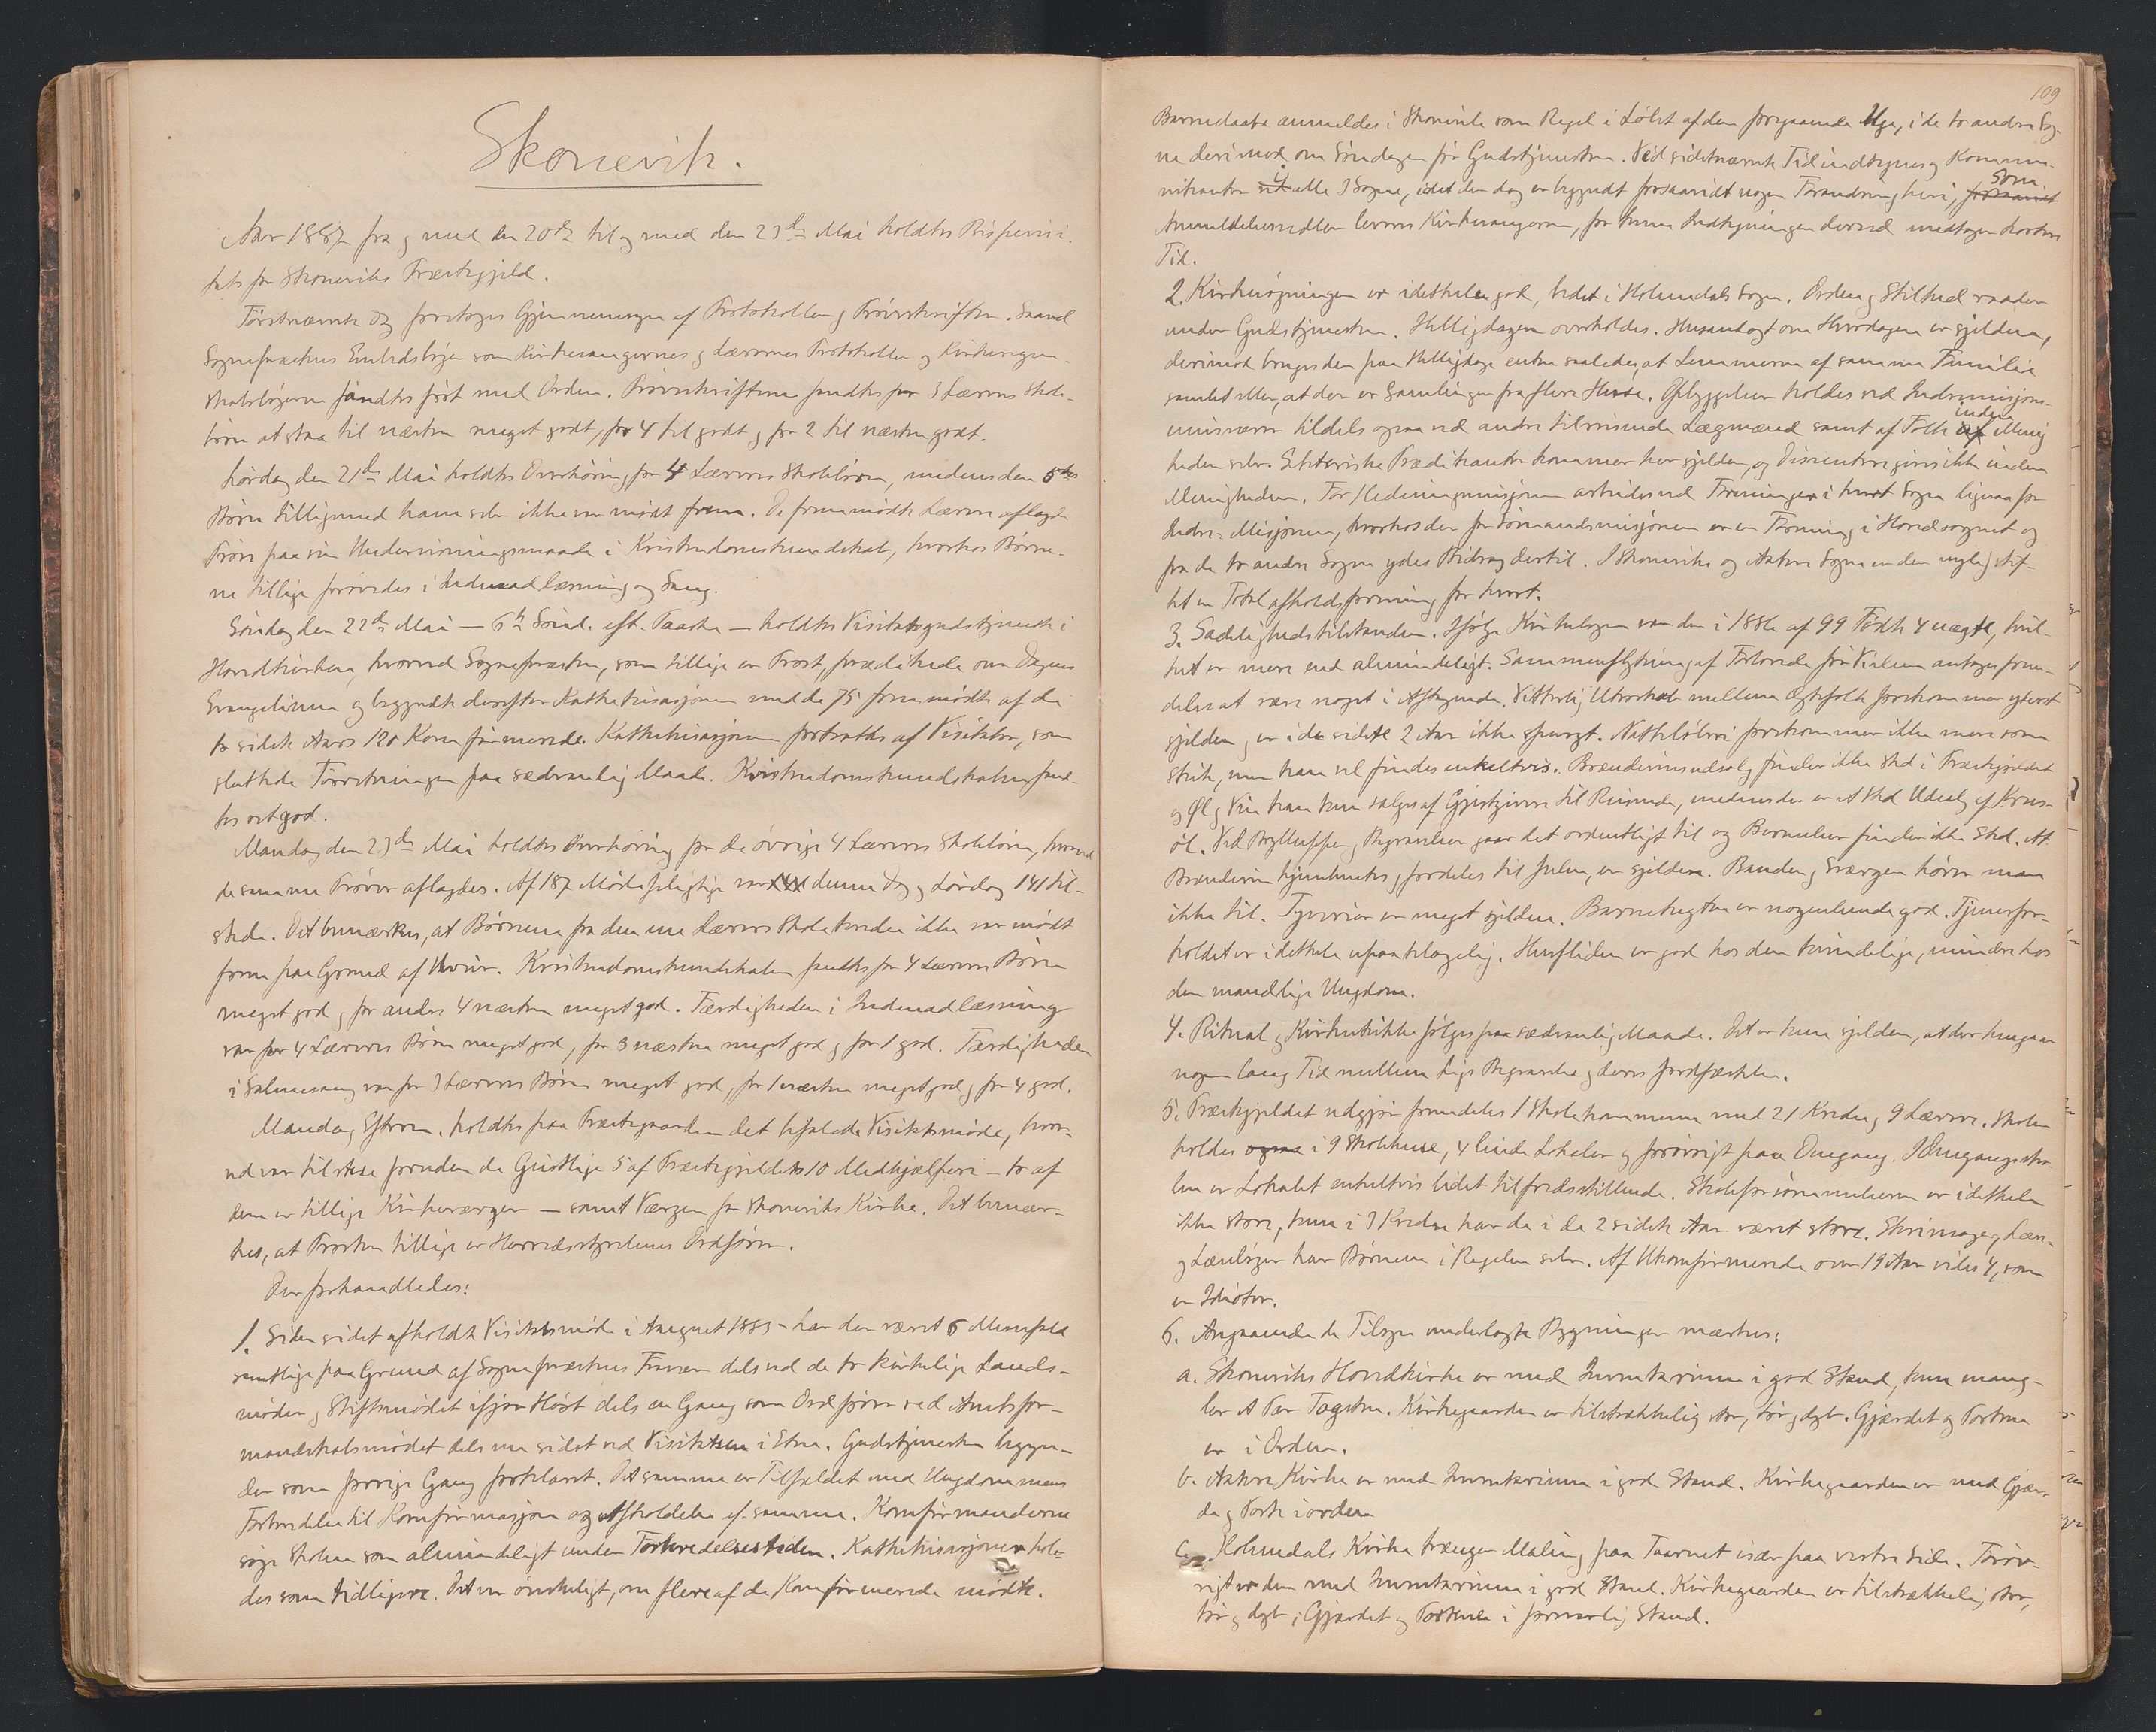 Skonevik.
Aar 1887 fra og med den 20de til og med den 23de Mai holdtes Bispevisi-
tats for Skoneviks Præstegjeld.
Førstnævnte Dag foretoges Gjennemsyn af Protokoller og Prøveskrifter. Saavel
Sognepræstens Embedsbøger som Kirkesangernes og Lærernes Protokoller og Kirkeregn-
skabsbøgerne fandtes ført med Orden. Prøveskrifterne fandtes for 3 Læreres Skole-
børn at staa til næsten meget godt, for 4 til godt og for 2 til næsten godt.
Lørdag den 21de Mai holdtes Overhøring for 4 Læreres Skolebørn, medens den 5tes
Børn tilligemed ham selv ikke var mødt frem. De fremmødte Lærere aflagde
Prøve paa sin Undervisningsmaade i Kristendomskundskab, hvorhos Børne-
ne tillige prøvedes i Indenadlæsning og Sang.
Søndag den 22de Mai – 6te Sønd. eft. Paaske – holdtes Visitatsgudstjeneste i
Hovedkirken, hvorved Sognepræsten, som tillige er Prost, prædikede over Dagens
Evangelium og begyndte derefter Kathekisasjonen med de 75 fremmødte af de
to sidste Aars 120 Konfirmerede. Kathekisasjonen fortsattes af Visitator, som
sluttede Forretningen paa sedvanlig Maade. Kristendomskundskaben fand-
tes ret god.
Mandag den 23de Mai holdtes Overhøring for de øvrige 4 Læreres Skolebørn, hvorved
de samme Prøver aflagdes. Af 187 Mødepligtige var denne Dag og Lørdag 141 til-
stede. Det bemærkes, at Børnene fra den ene Lærers Skolekredse ikke var mødt
frem paa Grund af Uveir. Kristendomskundskaben fandtes for 4 Læreres Børn
meget god og for andre 4 næsten meget god. Færdigheden i Indenadlæsning
var for 4 Læreres Børn meget god, for 3 næsten meget god og for 1 god. Færdigheden
i Salmesang var for 3 Læreres Børn meget god, for 1 næsten meget god og for 4 god.
Mandag Efterm. holdtes paa Præstegaarden det befalede Visitatsmøde, hvor-
ved var tilstede foruden de Geistlige 5 af Præstegjeldets 10 Medhjælpere – to af
dem er tillige Kirkeværger – samt Værgen for Skoneviks Kirke. Det bemær-
kes, at Prosten tillige er Herredsstyrelsens Ordfører.
Der forhandledes:
1. Siden sidst afholdt Visitatsmøde i August 1885 har der været 6 Messefald
samtlige paa Grund af Sognepræstens Fravær dels ved de to kirkelige Lands-
møder og Stiftsmødet ifjor Høst dels en Gang som Ordfører ved Amtsfor-
mandskabsmødet dels nu sidst ved Visitatsen i Etne. Gudstjenesten begyn-
der som forrige Gang forklaret. Det samme er Tilfældet med Ungdommens
Forberedelse til Konfirmasjon og Afholdelse af samme. Konfirmanderne
søge Skolen som almindeligt under Forberedelsestiden. Kathekisasjonen hol-
des som tidligere. Det er ønskeligt, om flere af de Konfirmerede mødte.
109
Barnedaabe anmeldes i Skonevik som Regel i Løbet af den foregaaende Uge, i de to andre Sog-
ne derimod om Søndagen før Gudstjenesten. Ved sidstnævnte Tid indtegnes og Kommu-
nikanter i alle 3 Sogne, idet der dog er begyndt forsaavidt nogen Forandring heri, som
Anmeldelsessedler leveres Kirkesangerne, for hvem Indtegningen derved medtager kortere
Tid.
2. Kirkesøgningen er idethele god, bedst i Holmedals Sogn. Orden og Stilhed raader
under Gudstjenesten. Helligdagen overholdes. Husandagt om Hverdagene er sjelden,
derimod bruges den paa Helligdage enten saaledes, at Lemmerne af samme Familie
samles eller, at der er Samlinger fra flere Huse. Opbyggelser holdes ved Indremisjons-
emissærer tildels ogsaa ved andre tilreisende Lægmænd samt af Folk inden Menig-
heden selv. Sekteriske Prædikanter kommer her sjelden, og Dissentere gives ikke inden
Menigheden. For Hedningemisjonen arbeides ved Foreninger i hvert Sogn ligesaa for
Indre-Misjonen, hvorhos der for Sømandsmisjonen er en Forening i Hovedsognet og
fra de to andre Sogne ydes Bidrag dertil. I Skoneviks og Aakre Sogne er der nylig stif-
tet en Totalafholdsforening for hvert.
3. Sædelighedstilstanden. Ifølge Kirkebogen var der i 1886 af 99 Fødte 4 uægte, hvil-
ket er mere end almindeligt. Sammenflytning af Forlovede før Vielsen antages frem-
deles at være noget i Aftagende. Vitterlig Utroskab mellem Ægtefolk forekommer yderst
sjelden og er i de sidste 2 Aar ikke spurgt. Natteløberi forekommer ikke mere som
Skik, men kan vel findes enkeltvis. Brændevinsudsalg finder ikke Sted i Præstegjeldet
og Øl og Vin kan kun sælges af Gjestgivere til Reisende, medens der er et Sted Udsalg af Krus-
øl. Ved Bryllupper og Begravelser gaar det ordentligt til og Beruselser finder ikke Sted. At
Brændevin hjemhentes og fordeles til Julen, er sjelden. Banden og Sværgen hører man
ikke til. Tyverier er meget sjelden. Barnetugten er nogenlunde god. Tjenerfor-
holdet er idethele upaaklagelig. Husfliden er god hos den kvindelige, mindre hos
den mandlige Ungdom.
4. Ritual og Kirkeskikke følges paa sædvanlig Maade. Det er kun sjelden, at der hengaar
nogen lang Tid mellem Ligs Begravelse og deres Jordfæstelse.
5. Præstegjeldet udgjør fremdeles 1 Skolekommune med 21 Kredse og 9 Lærere. Skolen
holdes i 9 Skolehuse, 4 leiede Lokaler og forøvrigt paa Omgang. I Omgangssko-
len er Lokalet enkeltvis lidet tilfredsstillende. Skoleforsømmelserne er idethele
ikke store, kun i 3 Kredse har de i de 2 sidste Aar været store. Skrivesager og Læse-
og Lærebøger har Børnene i Regelen selv. Af Ukonfirmerede over 19 Aar vides 4, som
er Idioter.
6. Angaaende de Tilsyn underlagte Bygninger mærkes:
a. Skoneviks Hovedkirke er med Inventarium i god Stand, kun mang-
ler et Par Tagsten. Kirkegaarden er tilstrækkelig stor, tør og dyb. Gjærdet og Portene
er i Orden.
b. Aakre Kirke er med Inventarium i god Stand. Kirkegaarden er med Gjær-
de og Port i orden
c. Holmedals Kirke trænger Maling paa Taarnet især paa vestre Side. Forøv-
rigt er den med Inventarium i god Stand. Kirkegaarden er tilstrækkelig stor,
tør og dyb; Gjærdet og Portene i forsvarlig Stand.